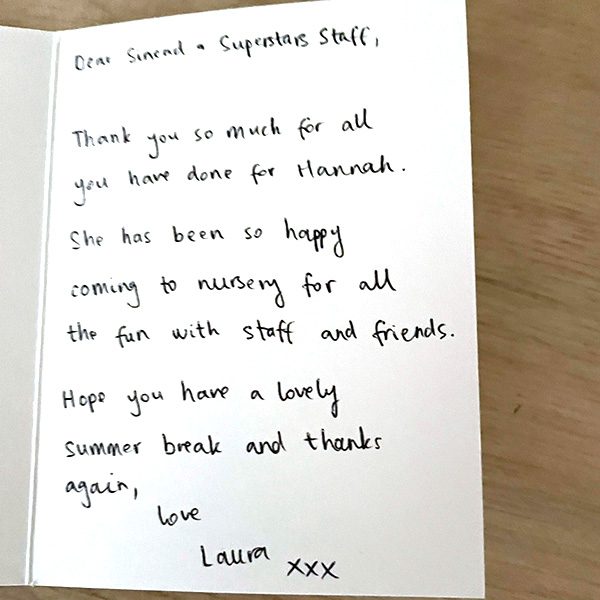 Dear Sinead & Superstars Staff,
Thank you so much for all
you have done for Hannah.
She has been so happy
coming to nursery for all
the fun with staff and friends.
Hope you have a lovely
summer break and thanks
again,
love
Laura xxx